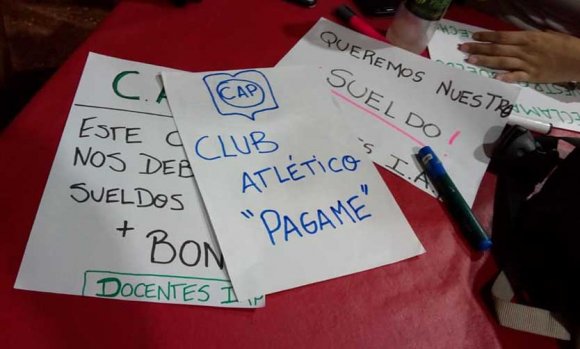 C.A
ESTE C
NOS DEB
SUELDOS
+
BON
DOCENTES I
CAP
CLUB
ATLÉTICO
"PAGAME"
QUEREMOS NUESTRO
SUELDO!
S I.A